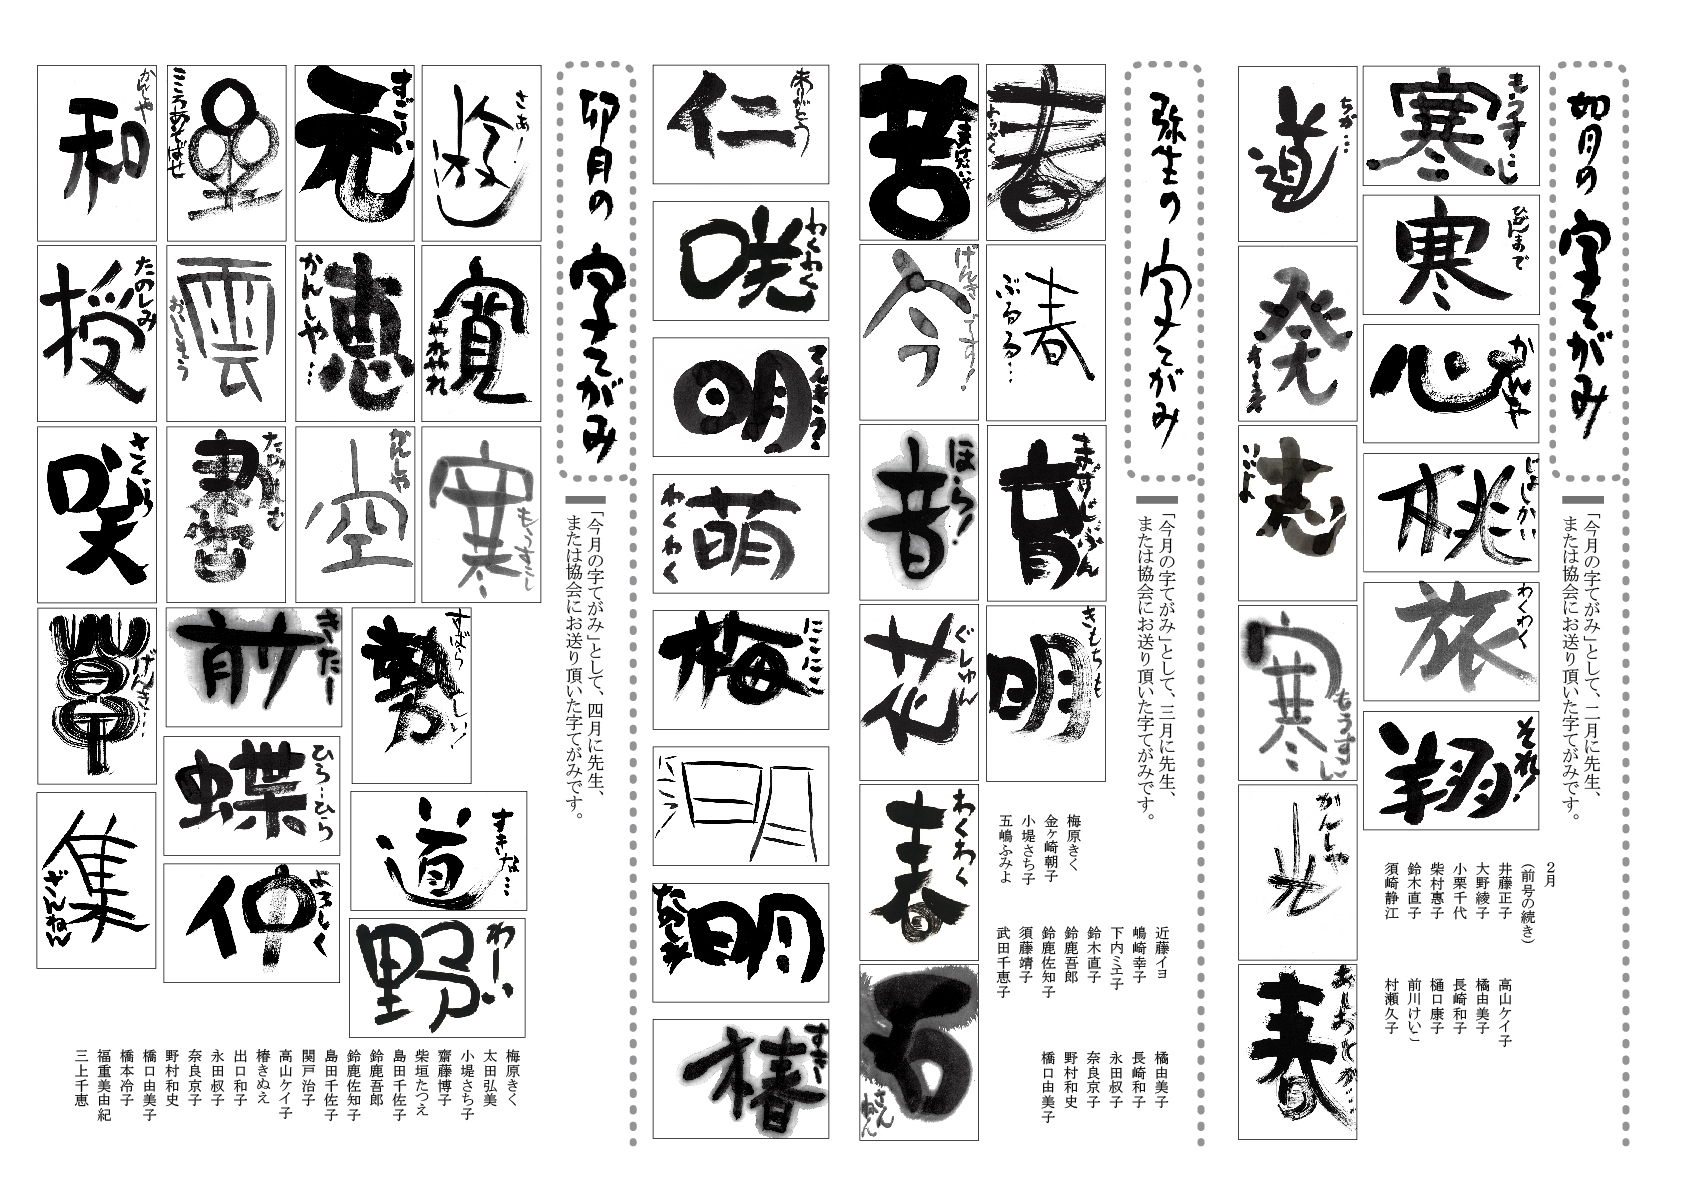 如月の 字てがみ
「今月の字てがみ」として、二月に先生、
または協会にお送り頂いた字てがみです。
寒
もうすこし
寒
心
かんしゃ
桃
旅
わくわく
翔
それ!
道
発
志
いいよ
寒
春
2月
(前号の続き)
井藤正子
大野綾子
小栗千代
柴村惠子
鈴木直子
須崎静江
高山ケイ子
橘由美子
長崎和子
樋口康子
前川けいこ
村瀬久子
弥生の 字てがみ
「今月の字てがみ」として、三月に先生、
または協会にお送り頂いた字てがみです。
春
春
ぶるるる…
育
明
きもちも
苦
今
げんきです!
音
ほら!
花
ぐしゅん
春
わくわく
梅原きく
金ヶ崎朝子
小堤さち子
五嶋ふみよ
近藤イヨ
嶋崎幸子
下内ミエ子
鈴木直子
鈴鹿吾郎
鈴鹿佐知子
須藤靖子
武田千恵子
橘由美子
長崎和子
永田叔子
奈良京子
野村和史
橋口由美子
仁
ありがとう
咲
わくわく
明
萌
わくわく
梅
にこにこ
明
明
椿
卯月の 字てがみ
「今月の字てがみ」として、四月に先生、
または協会にお送り頂いた字てがみです。
遊
さあー
元
すごーい
和
かんしゃ
覚
やれやれ
恵
かんしゃ…
雲
授
たのしみ
寒
もうすこし
空
かんしゃ
書
咲
勢
すばらしい!
前
きたー
草
げんき…
道
すきな…
蝶
ひらーひら
集
ざんねん
野
わーい
仲
よろしく
梅原きく
太田弘美
小堤さち子
齋藤博子
柴垣たつえ
島田千佐子
鈴鹿吾郎
鈴鹿佐知子
島田千佐子
関戸治子
高山ケイ子
椿きぬえ
出口和子
永田叔子
奈良京子
野村和史
橋口由美子
橋本冷子
福重美由紀
三上千恵